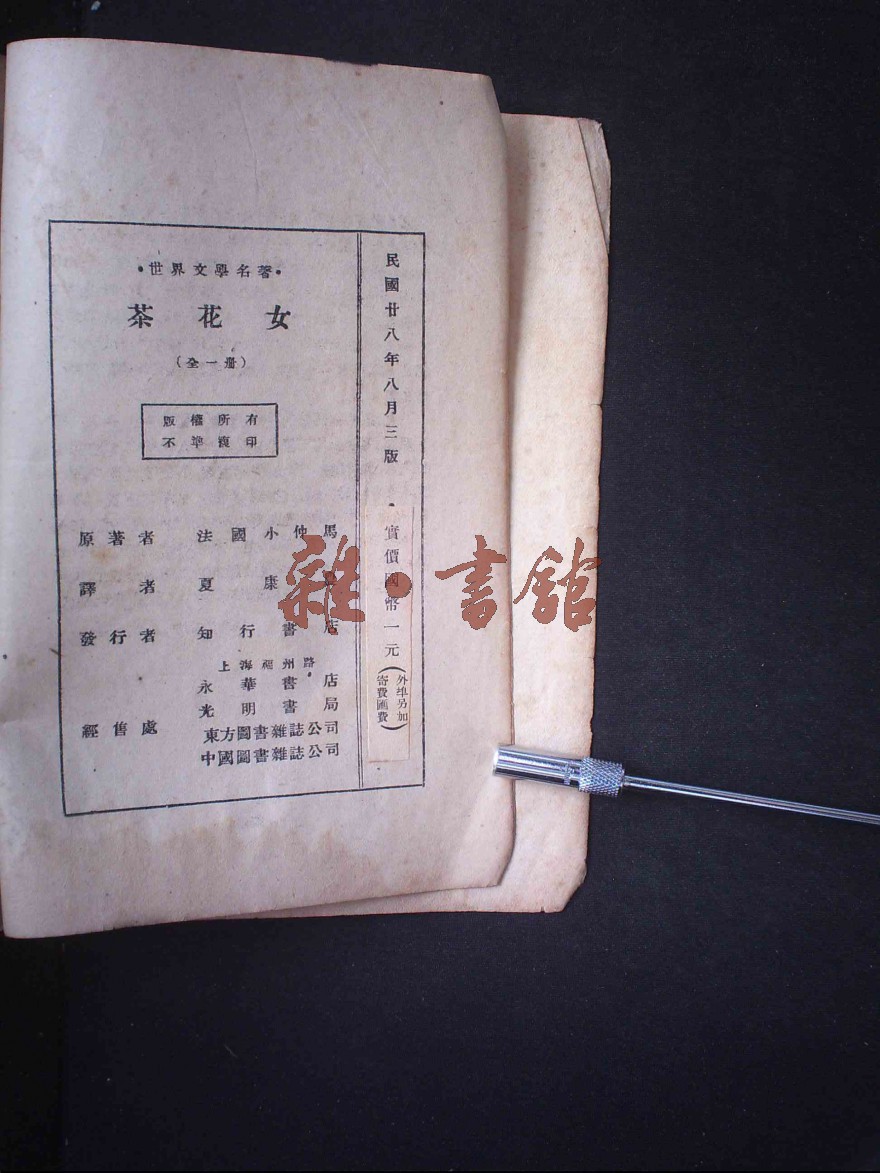 •世界文學名著•
茶花女
(全一册)
版權所有
不準複印
原著者 法國小仲馬
譯者 夏康
發行者 知行書店
上海福州路
永華書店
光明書局
經售處 東方圖書雜誌公司
中國圖書雜誌公司
民國廿八年八月三版
•實價國幣一元(外埠另加寄費匯費)
雜•書館